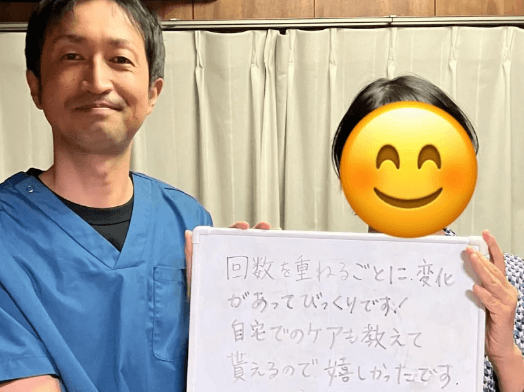 回数を重ねるごとに、変化
があってびっくりです!
自宅でのケアも教えて
貰えるので嬉しかったです